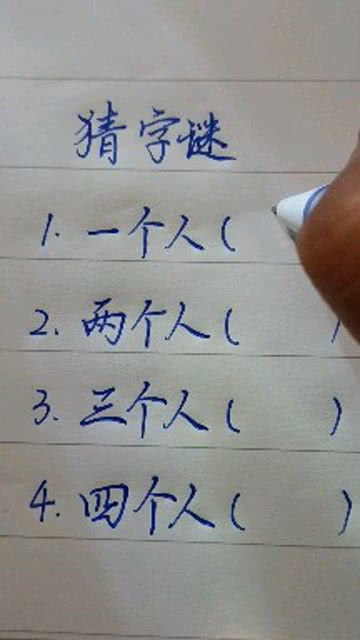 猜字谜
1. 一个人(
2. 两个人( )
3. 三个人( )
4. 四个人( )